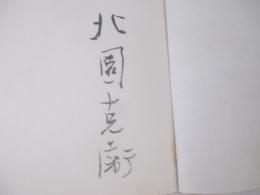 北園克衛